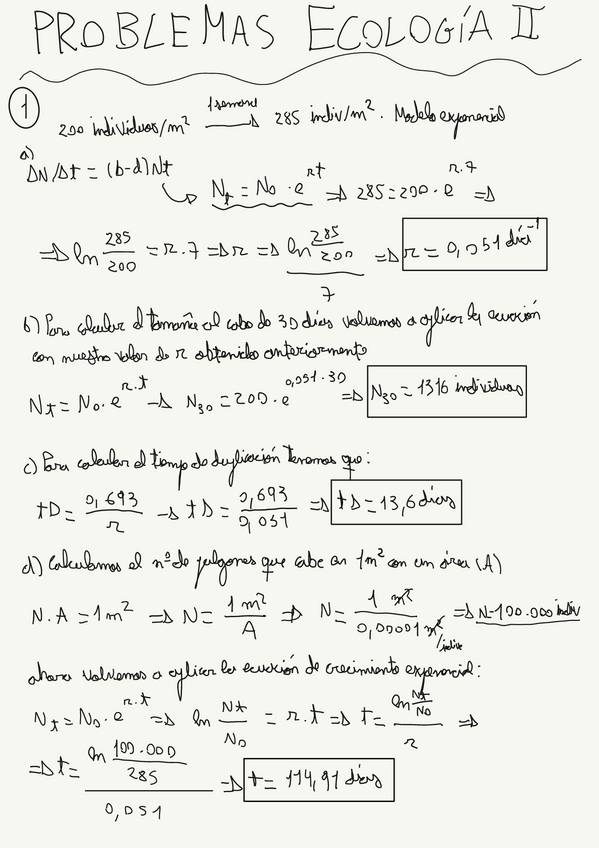 PROBLEMAS ECOLOGÍA II
① 200 individuos/m² —1 semana→ 285 indiv/m². Modelo exponencial
a)
ΔN/Δt = (b-d)Nt
↳ Nt = No · e^rt ⇒ 285 = 200 · e^r.7 ⇒
⇒ ln 285/200 = r.7 ⇒ r ⇒ ln 285/200 / 7 ⇒ r = 0,051 día⁻¹
b) Para calcular el tamaño al cabo de 30 días volvemos a aplicar la ecuación
con nuestro valor de r obtenido anteriormente
Nt = No · e^r.t → N30 = 200 · e^0,051·30 ⇒ N30 = 1316 individuos
c) Para calcular el tiempo de duplicación tenemos que:
tD = 0,693/r → tD = 0,693/0,051 ⇒ tD = 13,6 días
d) Calculamos el nº de pulgones que cabe en 1m² con un área (A)
N.A = 1m² ⇒ N = 1 m²/A ⇒ N = 1 m²/0,00001 m²/indiv ⇒ N=100.000 indiv
ahora volvemos a aplicar la ecuación de crecimiento exponencial:
Nt = No · e^r.t ⇒ ln Nt/No = r.t ⇒ t = ln Nt/No / r ⇒
⇒ t = ln 100.000/285 / 0,051 ⇒ t = 114,91 días